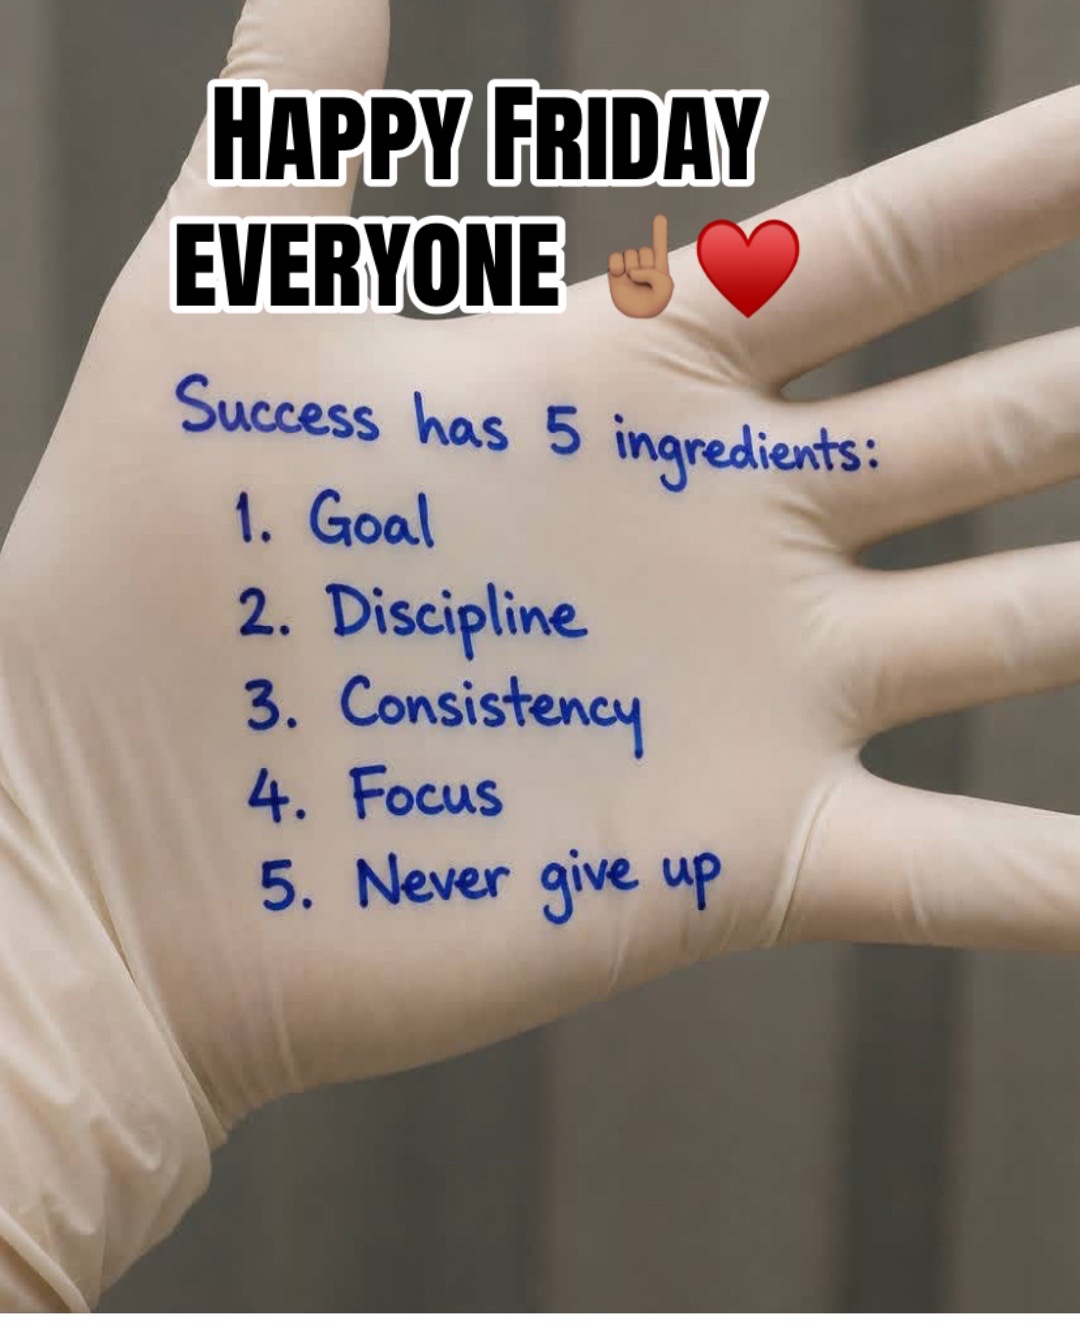 HAPPY FRIDAY
EVERYONE ☝🏽♥️
Success has 5 ingredients:
1. Goal
2. Discipline
3. Consistency
4. Focus
5. Never give up